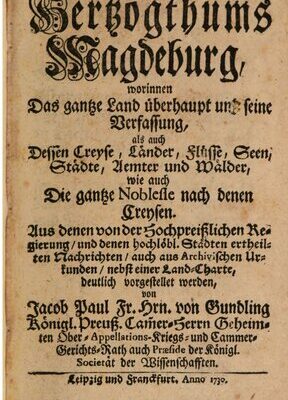 Hertzogthums
Magdeburg,
worinnen
Das gantze Land überhaupt und seine
Verfassung,
als auch
Dessen Creyse, Länder, Flüsse, Seen,
Städte, Aemter und Wälder,
wie auch
Die gantze Noblesse nach denen
Creysen.
Aus denen von der Hochpreißlichen Re-
gierung/ und denen hochlöbl. Städten ertheil-
ten Nachrichten/ auch aus Archivischen Ur-
kunden/ nebst einer Land-Charte,
deutlich vorgestellet werden,
von
Jacob Paul Fr. Hrn. von Gundling
Königl. Preuß. Cam̃er-Herrn Geheim-
ten Ober-Appellations-Kriegs- und Cammer-
Gerichts-Rath auch Præside der Königl.
Societät der Wissenschafften.
Leipzig und Franckfurt. Anno 1730.